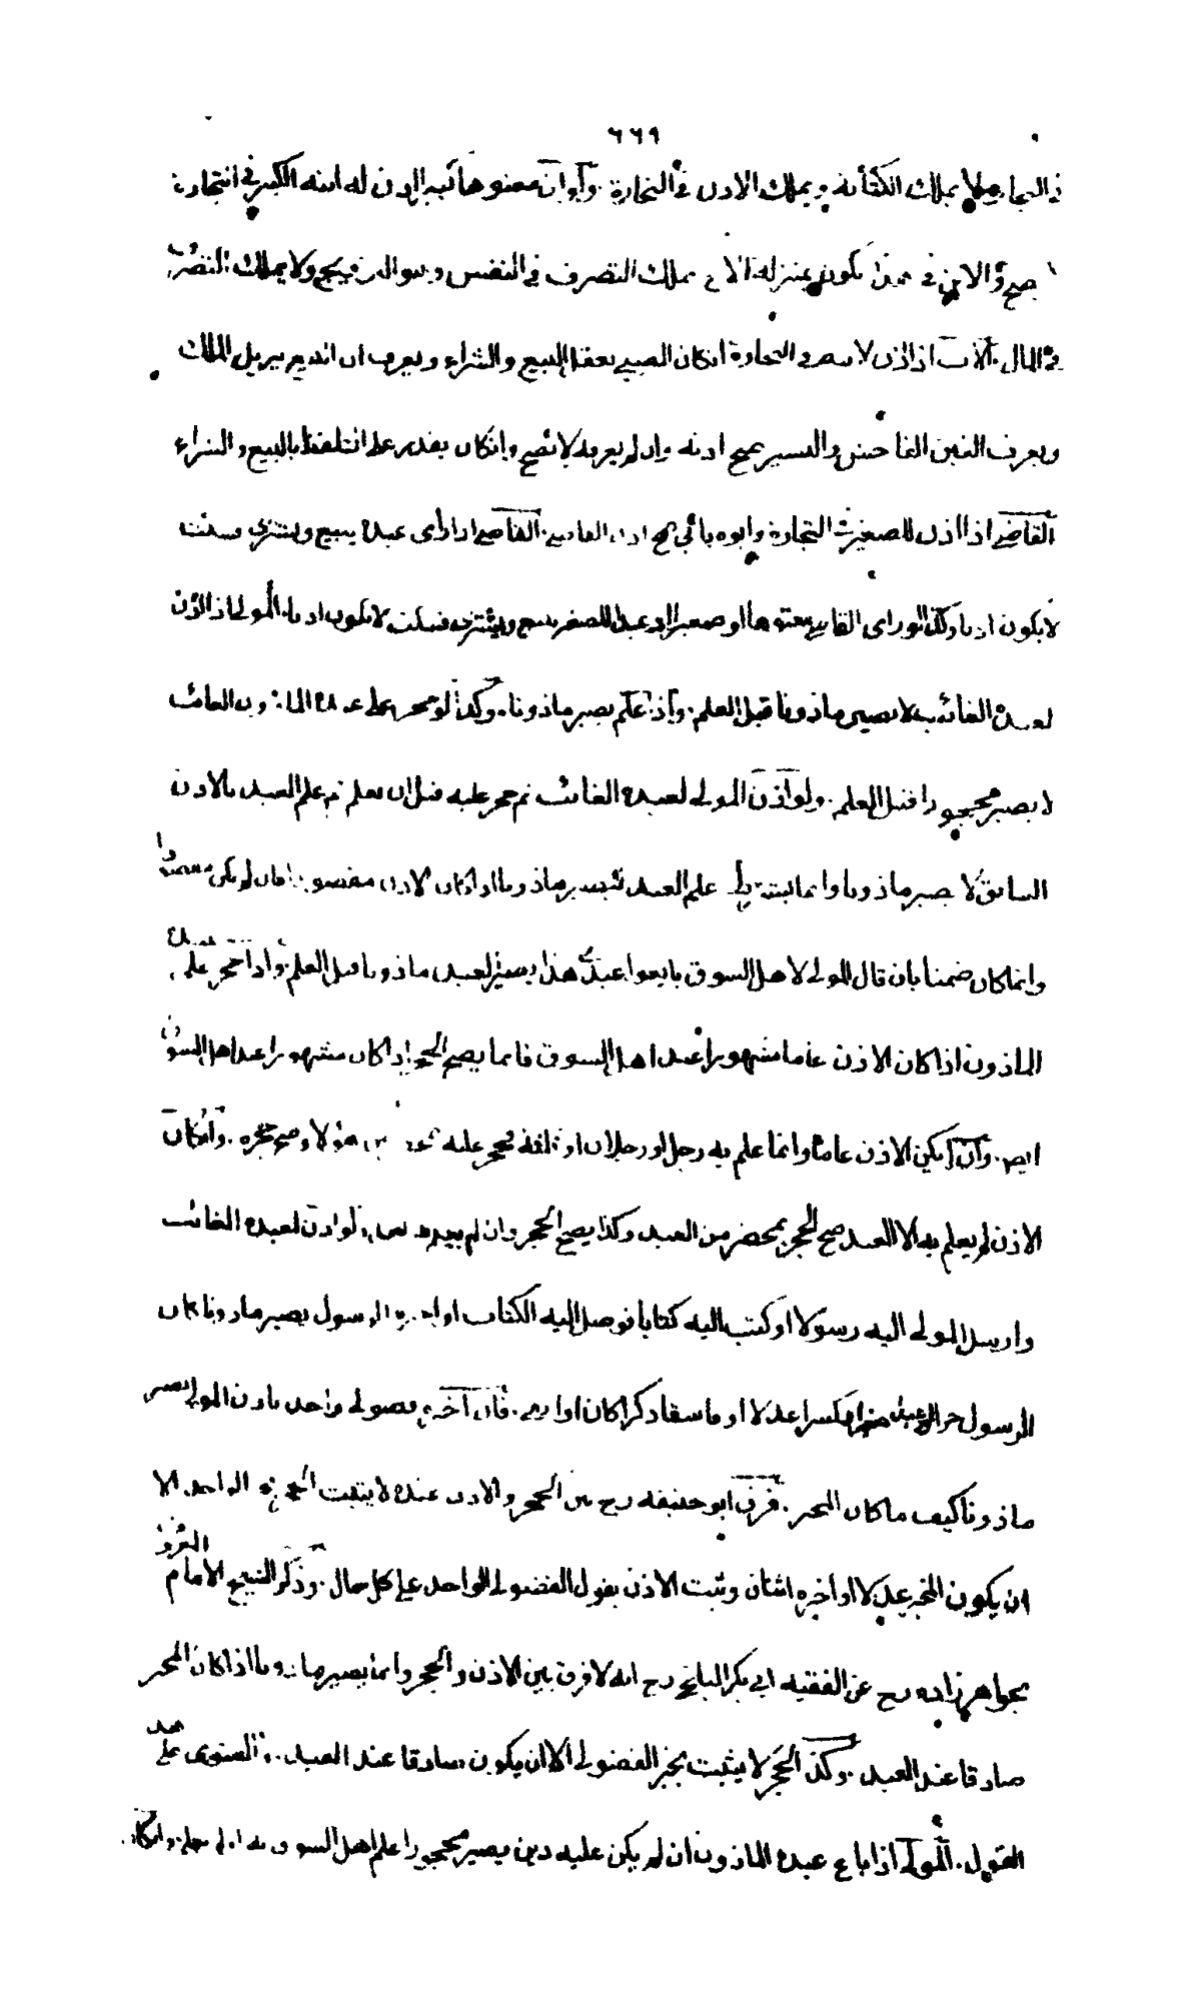 ٦٦٩
في التجارة ولا يملك الكتابة ويملك الاذن في التجارة ولو ان معتوها اذن له ابنه الكبير في التجارة
صح والابن في هذا يكون بمنزلة الاخ يملك التصرف في النفس وهو التزويج ولا يملك التصرف
في المال الاب اذا اذن لابنه في التجارة ان كان الصبي يعقل البيع والشراء ويعرف ان البيع يزيل الملك
ويعرف الغبن الفاحش واليسير يصح اذنه وان لم يعرف لا يصح وان كان يقدر على التلفظ بالبيع والشراء
القاضي اذا اذن للصغير في التجارة وابوه يأبى صح اذن القاضي القاضي اذا رأى عبده يبيع ويشتري وسكت
لا يكون اذنا وكذا لو رأى القاضي معتوها او صغيرا او عبدا للصغير يبيع ويشتري فسكت لا يكون اذنا المولى اذا اذن
لعبده الغائب لا يصير ماذونا قبل العلم واذا علم يصير ماذونا وكذا لو حجر على عبده الماذون الغائب
لا يصير محجورا قبل العلم ولو اذن المولى لعبده الغائب ثم حجر عليه قبل ان يعلم ثم علم العبد بالاذن
السابق لا يصير ماذونا وانما علم العبد ليصير ماذونا اذا كان الاذن مقصودا فان لم يكن مقصودا
وانما كان ضمنا بان قال المولى لاهل السوق بايعوا عبدي هذا يصير العبد ماذونا قبل العلم واذا حجر على عبده
الماذون اذا كان الاذن عاما مشهورا عند اهل السوق فانما يصح الحجر اذا كان مشهورا عند اهل السوق
ايضا وان لم يكن الاذن عاما وانما علم به رجل او رجلان او ثلثة فحجر عليه بمحضر من هؤلاء صح حجره وان كان
الاذن لم يعلم به الا العبد صح الحجر بمحضر من العبد وكذا يصح الحجر وان لم يعلم ولو اذن لعبده الغائب
وارسل المولى اليه رسولا او كتب اليه كتابا فوصل اليه الكتاب او الرسول يصير ماذونا كان
الرسول حرا او عبدا صغيرا او كبيرا عدلا او فاسقا ذكرا كان او انثى فان اخبره فضولي واحد باذن المولى يصير
ماذونا كيف ما كان المخبر فرق ابو حنيفة رح بين الحجر والاذن عنده لا يثبت الحجر بخبر الواحد الا
ان يكون المخبر عدلا او اخبره اثنان ويثبت الاذن بقول الفضولي الواحد على كل حال وذكر الشيخ الامام المعروف
بخواهرزاده رح عن الفقيه ابي بكر البلخي رح انه لا فرق بين الاذن والحجر وانما يصير ماذونا اذا كان المخبر
صادقا عند العبد وكذا الحجر لا يثبت بخبر الفضولي الا ان يكون صادقا عند العبد والفتوى على هذا
القول المولى اذا باع عبده الماذون ان لم يكن عليه دين يصير محجورا علم اهل السوق به او لم يعلم وان كان